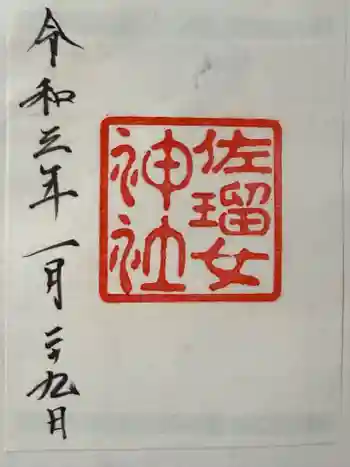 佐瑠女
神社
令和三年一月二十九日